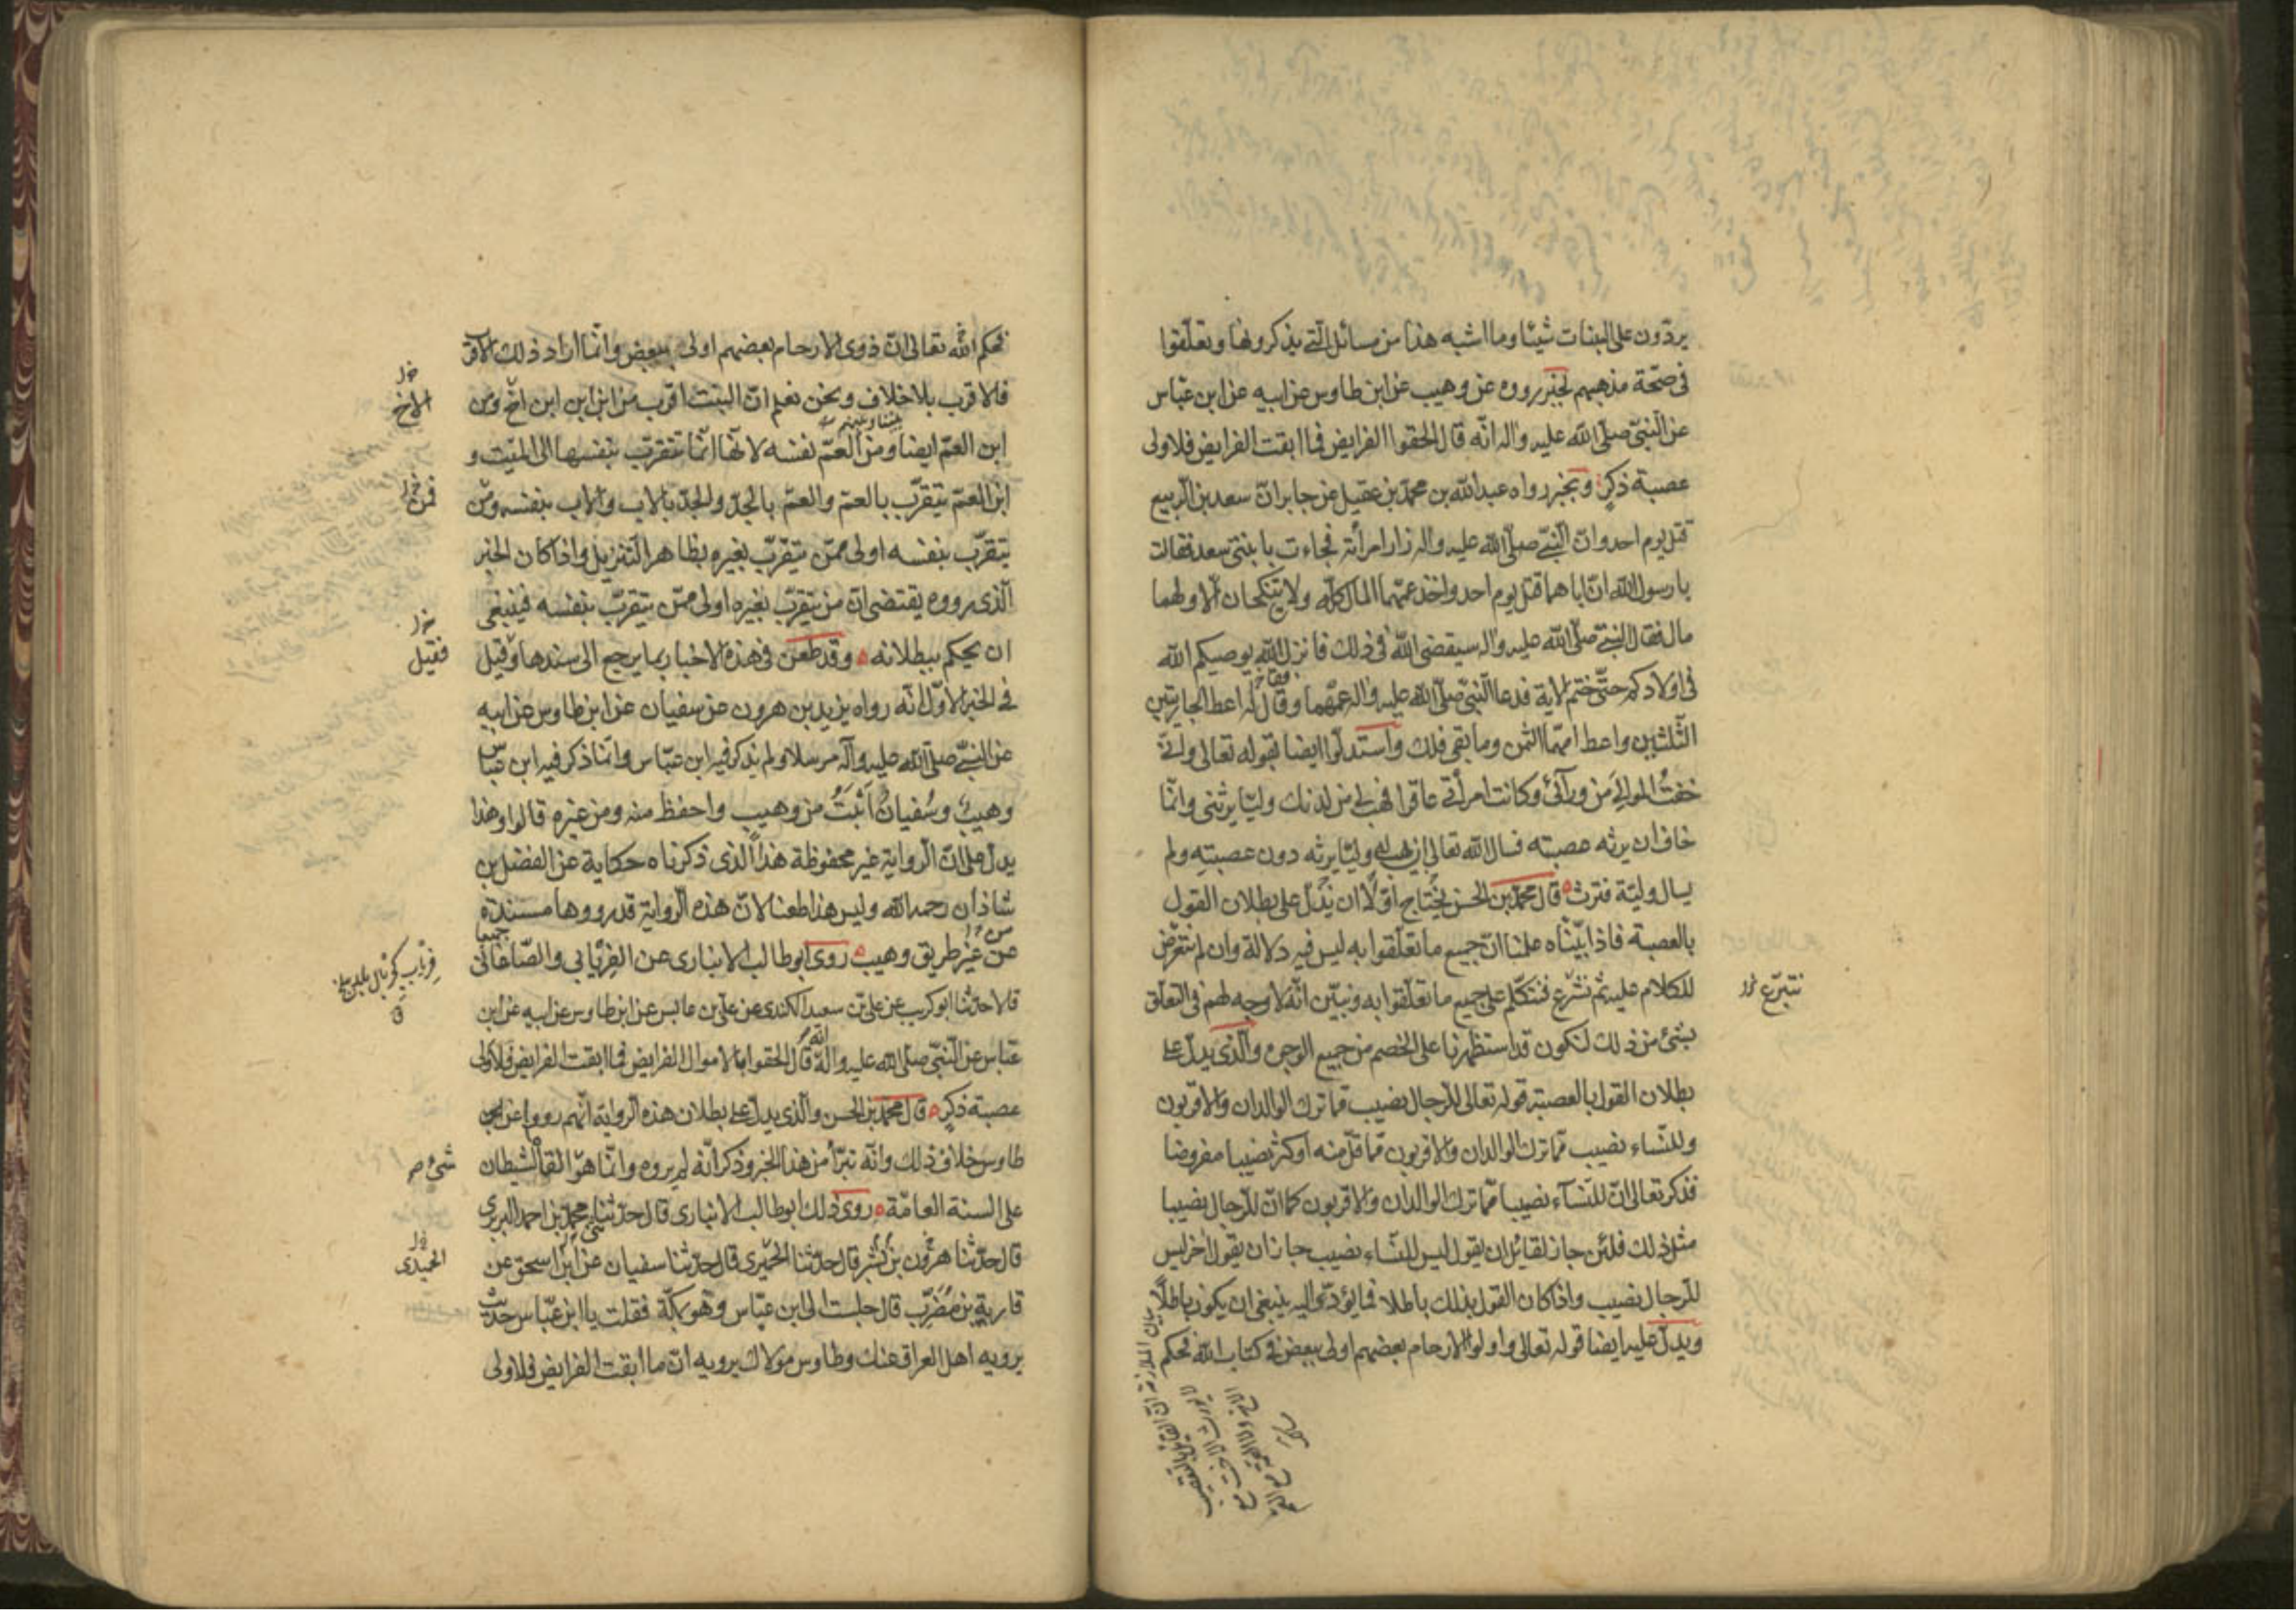 يردّون على البنات شيئا وما اشبه هذا من مسائل التى يذكرونها وتعلّقوا
فى صحّة مذهبهم لخبر رووه عن وهيب عن ابن طاوس عن ابيه عن ابن عباس
عن النبىّ صلّى الله عليه واله انّه قال الحقوا الفرايض فما ابقت الفرايض فلاولى
عصبة ذكرٍ وبخبر رواه عبدالله بن محمّد بن عقيل عن جابر انّ سعد بن الرّبيع
قتل يوم احد وان النّبىّ صلّى الله عليه واله زار امرأته فجاءت بابنتى سعد فقالت
يا رسول الله انّ اباهما قتل يوم احد واخذ عمّهما المال كلّه ولا تنكحان الّا ولهما
مال فقال النبىّ صلّى الله عليه واله سيقضى الله فى ذلك فانزل الله يوصيكم الله
فى اولادكم حتّى ختم الاية فدعا النّبىّ صلّى الله عليه واله عمّهما وقال له اعط الجاريتين
الثّلثين واعط امّهما الثمن وما بقى فلك واستدلّوا ايضا بقوله تعالى وانّى
خفتُ الموالىَ من ورآئى وكانت امرأتى عاقرا فهب لى من لدنك وليّا يرثنى وانّما
خاف ان يرثه عصبته فسال الله تعالى ان يهب له وليّا يرثه دون عصبته ولم
يسال وليّة فترث قال محمّد بن الحسن يحتاج اوّلا ان ندلّ على بطلان القول
بالعصبة فاذا بيّنّاه علمنا انّ جميع ما تعلّقوا به ليس فيه دلالة وان لم نتعرّض
للكلام عليه ثم نشرع فنتكلّم على جميع ما تعلّقوا به ونبيّن انّه لا وجه لهم فى التعلّق
نتبرّع خ ل
بشئ من ذلك لنكون قد استظهرنا على الخصم من جميع الوجوه والّذى يدلّ على
بطلان القول بالعصبة قوله تعالى للرّجال نصيب ممّا ترك الوالدان والاقربون
وللنّساء نصيب ممّا ترك الوالدان والاقربون ممّا قلّ منه او كثر نصيبا مفروضا
فذكر تعالى انّ للنّسآء نصيبا ممّا ترك الوالدان والاقربون كما انّ للرّجال نصيبا
مثل ذلك فلئن جاز لقائل ان يقول ليس للنّساء نصيب جاز ان يقول اخر ليس
للرّجال نصيب واذا كان القول بذلك باطلا فما يؤدّى اليه ينبغى ان يكون باطلًا
ويدلّ عليه ايضا قوله تعالى واولوا الارحام بعضهم اولى ببعض فى كتاب الله فحكم
فحكم الله تعالى انّ ذوى الارحام بعضهم اولى ببعض وانّما اراد ذلك الاقرب
فالاقرب بلا خلاف ونحن نعلم انّ البنت اقرب من ابن ابن ابن اخ ومن
الاخ خ ل
ابن العمّ ايضا ومن العمّ نفسه لانّها انّما تتقرّب بنفسها الى الميّت و
ابن العمّ يتقرّب بالعمّ والعمّ بالجدّ والجدّ بالاب والاب بنفسه ومن
فمن خ ل
يتقرّب بنفسه اولى ممّن يتقرّب بغيره بظاهر التنزيل واذا كان الخبر
الّذى رووه يقتضى انّ من يتقرّب بغيره اولى ممّن يتقرّب بنفسه فينبغى
ان يحكم ببطلانه وقد طعن فى هذه الاخبار بما يرجع الى سندها وقيل
فقيل خ ل
فى الخبر الاوّل انّه رواه يزيد بن هرون عن سفيان عن ابن طاوس عن ابيه
عن النبىّ صلّى الله عليه وآله مرسلا ولم يذكر فيه ابن عبّاس وانّما ذكر فيه ابن عبّاس
وهيبٌ وسُفيانُ اَثبَتُ من وهيب واحفظ منه ومن غيره قالوا وهذا
يدلّ على انّ الرواية غير محفوظة هذا الّذى ذكرناه حكاية عن الفضل بن
شاذان رحمه الله وليس هذا طعنا لانّ هذه الرّواية قد رووها مسندة
عن غير طريق وهيب روى ابوطالب الانبارى عن الفِريابى والصّاغانى
جميعا
قالا حدّثنا ابو كريب عن علىّ بن سعيد الكندى عن علىّ بن عابس عن ابن طاوس عن ابيه عن ابن
عبّاس عن النّبىّ صلّى الله عليه واله انّه قال الحقوا بالاموال الفرايض فما ابقت الفرايض فلاولى
عصبة ذكرٍ قال محمّد بن الحسن والّذى يدلّ على بطلان هذه الرّواية انّهم رووا عن
طاوس خلاف ذلك وانّه تبرّأ من هذا الخبر وذكر انّه لم يروه وانّما هو القاه الشيطان
شئ
على السنة العامّة روى ذلك ابوطالب الانبارى قال حدّثنا محمّد بن احمد البربرى
قال حدّثنا هرون بن بشر قال حدّثنا الحميرى قال حدّثنا سفيان عن ابى اسحق عن
الحميدى خ ل
قاربة بن مُضَرِّب قال جلست الى ابن عبّاس وهو بمكّة فقلت يا ابن عبّاس حديث
يرويه اهل العراق عنك وطاوس مولاك يرويه انّ ما ابقت الفرايض فلاولى